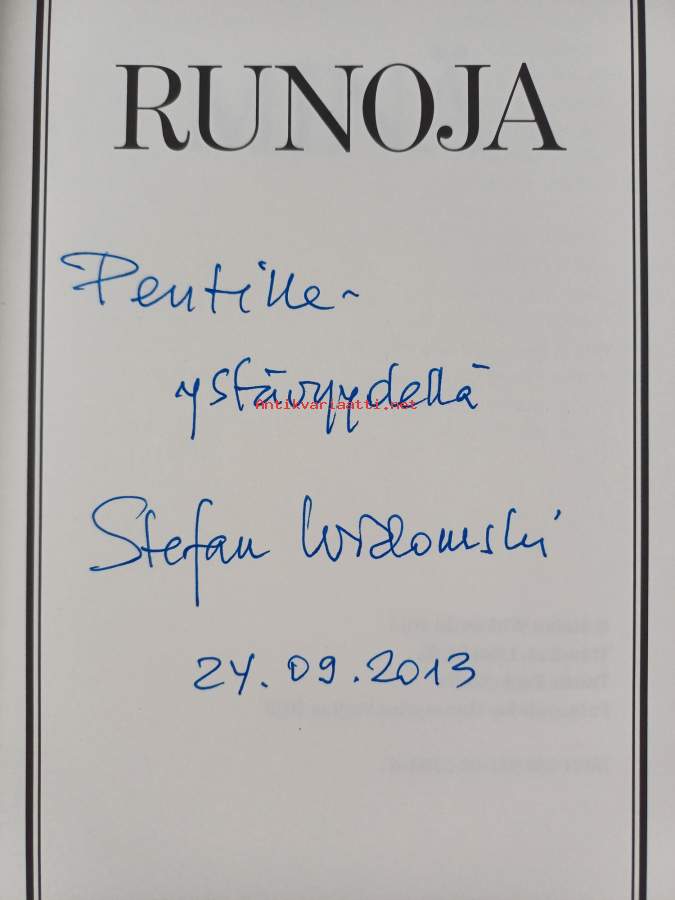 RUNOJA
Pentille -
ystävyydellä
Antikvariaatti.net
Stefan Widomski
24.09.2013